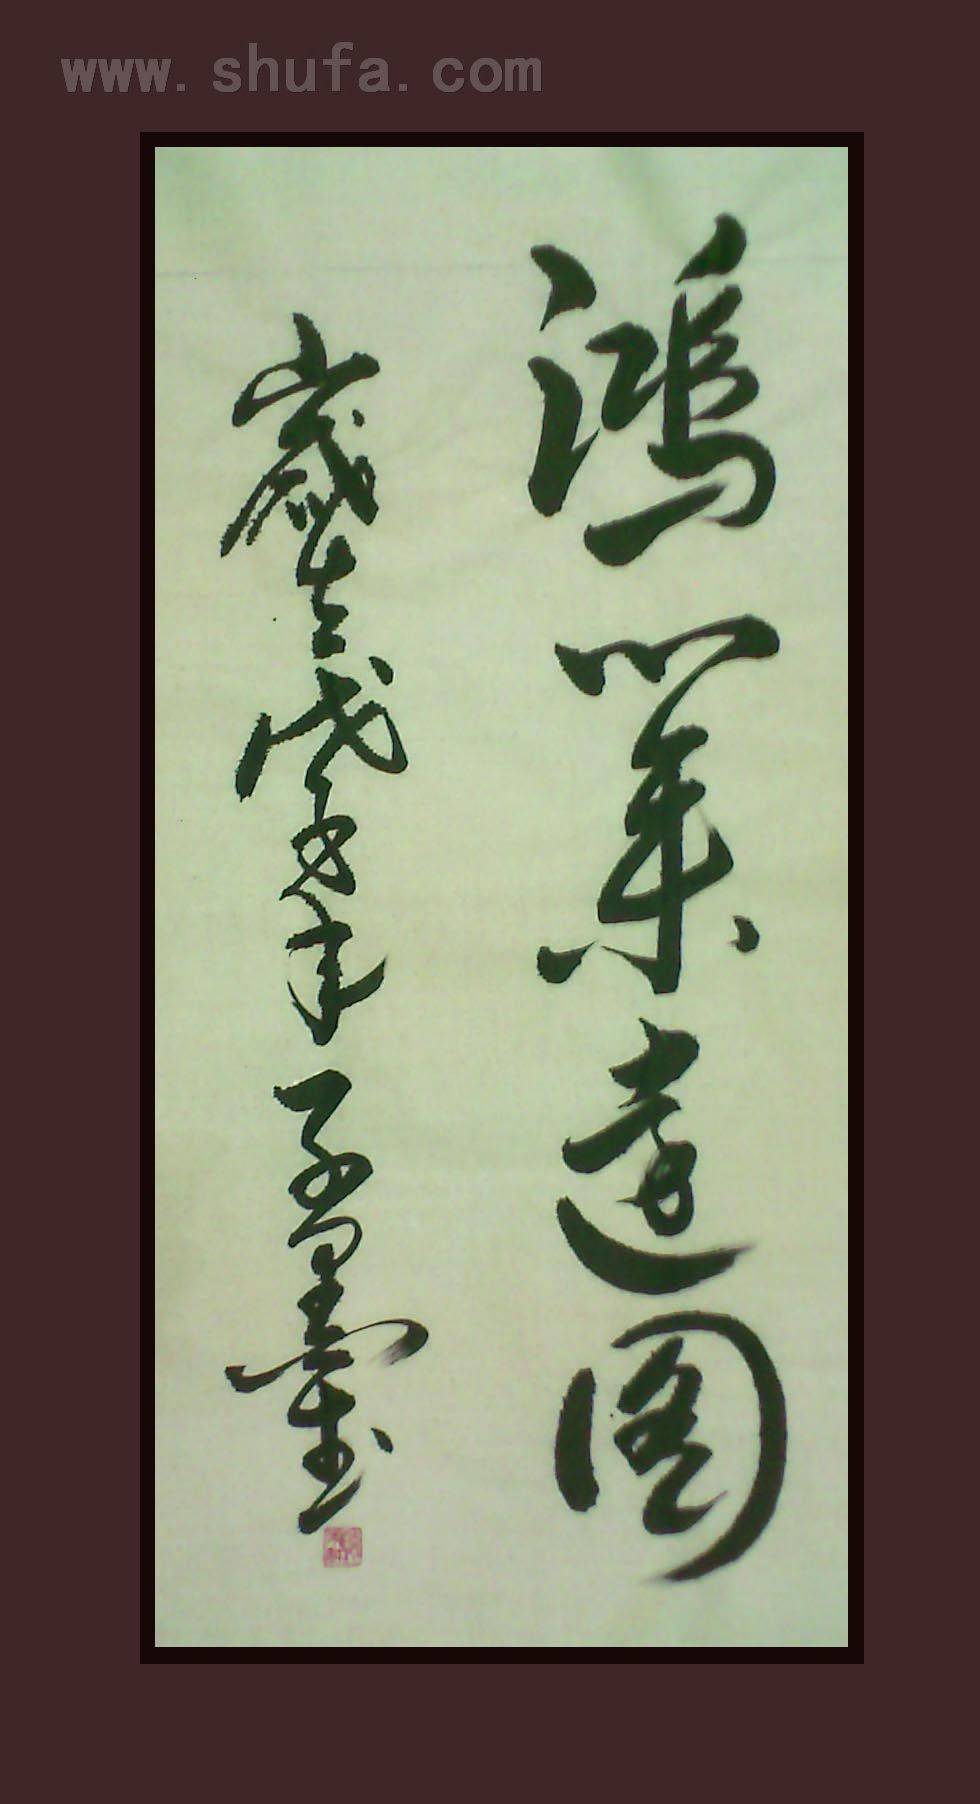 www.shufa.com
鴻業遠图
歲在戊子年